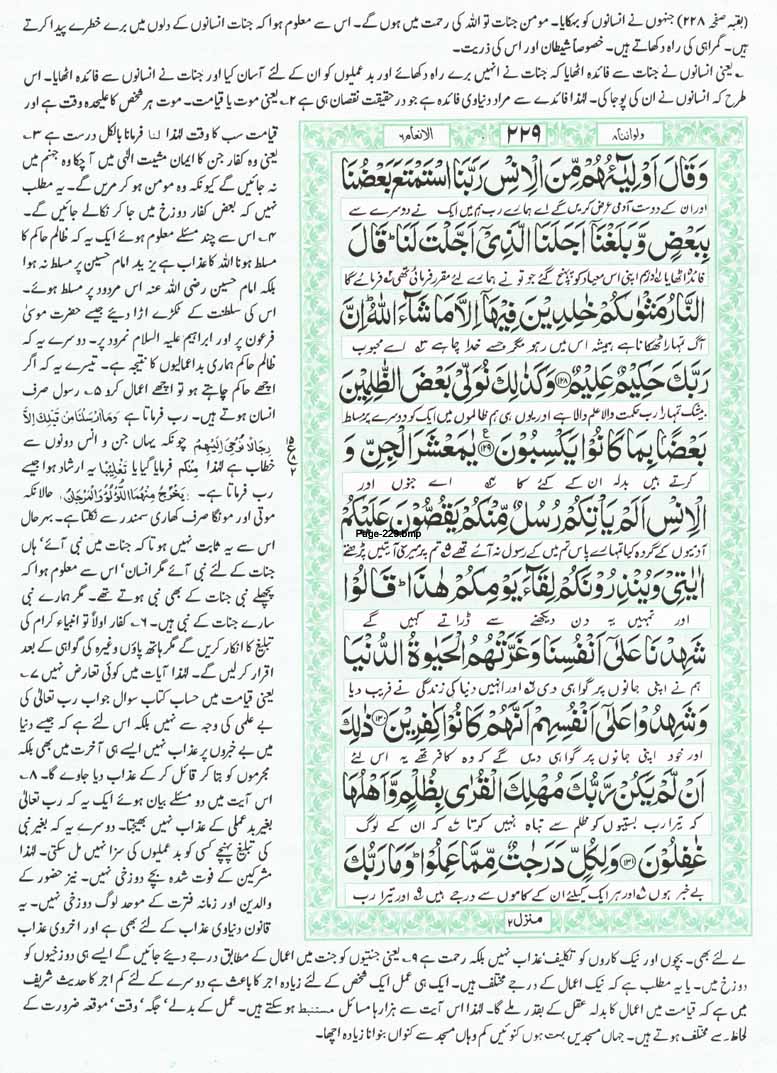 (بقیہ صفحہ ۲۲۸) جنہوں نے انسانوں کو بہکایا۔ مومن جنات تو اللہ کی رحمت میں ہوں گے۔ اس سے معلوم ہوا کہ جنات انسانوں کے دلوں میں برے خطرے پیدا کرتے
ہیں۔ گمراہی کی راہ دکھاتے ہیں۔ خصوصاً شیطان اور اس کی ذریت۔
۱۔ یعنی انسانوں نے جنات سے فائدہ اٹھایا کہ جنات نے انہیں برے راہ دکھائے اور بدعملیوں کو ان کے لئے آسان کیا اور جنات نے انسانوں سے فائدہ اٹھایا۔ اس
طرح کہ انسانوں نے ان کی پوجا کی۔ لہٰذا فائدے سے مراد دنیاوی فائدہ ہے جو در حقیقت نقصان ہی ہے ۲۔ یعنی موت یا قیامت۔ موت ہر شخص کا علیحدہ وقت ہے اور
قیامت سب کا وقت لہٰذا لنا فرمانا بالکل درست ہے ۳۔
یعنی وہ کفار جن کا ایمان مشیت الٰہی میں آ چکا وہ جہنم میں
نہ جائیں گے کیونکہ وہ مومن ہو کر مریں گے۔ یہ مطلب
نہیں کہ بعض کفار دوزخ میں جا کر نکالے جائیں گے۔
۴۔ اس سے چند مسئلے معلوم ہوئے ایک یہ کہ ظالم حاکم کا
مسلط ہونا اللہ کا عذاب ہے یزید امام حسین پر مسلط نہ ہوا
بلکہ امام حسین رضی اللہ عنہ اس مردود پر مسلط ہوئے۔
اس کی سلطنت کے ٹکڑے اڑا دیئے جیسے حضرت موسیٰ
فرعون پر اور ابراہیم علیہ السلام نمرود پر۔ دوسرے یہ کہ
ظالم حاکم ہماری بداعمالیوں کا نتیجہ ہے۔ تیسرے یہ کہ اگر
اچھے حاکم چاہتے ہو تو اچھے اعمال کرو ۵۔ رسول صرف
انسان ہوتے ہیں۔ رب فرماتا ہے وَمَا اَرْسَلْنَا مِنْ قَبْلِكَ اِلَّا
رِجَالًا نُّوْحِىْۤ اِلَيْهِمْ چونکہ یہاں جن و انس دونوں سے
خطاب ہے لہٰذا منکم فرمایا گیا یا تغلیبًا یہ ارشاد ہوا جیسے
رب فرماتا ہے۔ يَخْرُجُ مِنْهُمَا اللُّؤْلُؤُ وَالْمَرْجَانُ حالانکہ
موتی اور مونگا صرف کھاری سمندر سے نکلتا ہے۔ بہرحال
اس سے یہ ثابت نہیں ہوتا کہ جنات میں نبی آئے ہاں
جنات کے لئے نبی آئے مگر انسان اس سے معلوم ہوا کہ
پچھلے نبی جنات کے بھی نبی ہوتے تھے۔ مگر ہمارے نبی
سارے جنات کے نبی ہیں۔ ۶۔ کفار اولاً تو انبیاء کرام کی
تبلیغ کا انکار کریں گے مگر ہاتھ پاؤں وغیرہ کی گواہی کے بعد
اقرار کر لیں گے۔ لہٰذا آیات میں کوئی تعارض نہیں ۷۔
یعنی قیامت میں حساب کتاب سوال جواب رب تعالیٰ کی
بے علمی کی وجہ سے نہیں بلکہ اس لئے ہے کہ جیسے دنیا
میں بے خبروں پر عذاب نہیں ایسے ہی آخرت میں بھی بلکہ
مجرموں کو بتا کر قائل کر کے عذاب دیا جاوے گا۔ ۸۔
اس آیت میں دو مسئلے بیان ہوئے ایک یہ کہ رب تعالیٰ
بغیر بدعملی کے عذاب نہیں بھیجتا۔ دوسرے یہ کہ بغیر نبی
کی تبلیغ پہنچے کسی کو بدعملیوں کی سزا نہیں مل سکتی۔ لہٰذا
مشرکین کے فوت شدہ بچے دوزخی نہیں۔ نیز حضور کے
والدین اور زمانہ فترت کے موحد لوگ دوزخی نہیں۔ یہ
قانون دنیاوی عذاب کے لئے بھی ہے اور اخروی عذاب
ولواننا ۸
۲۲۹
الانعام ۶
وَقَالَ اَوْلِيٰٓـؤُهُمْ مِّنَ الْاِنْسِ رَبَّنَا اسْتَمْتَعَ بَعْضُنَا
اور ان کے دوست آدمی عرض کریں گے اے ہمارے رب ہم میں ایک نے دوسرے سے
بِبَعْضٍ وَّبَلَغْنَاۤ اَجَلَنَا الَّذِىْۤ اَجَّلْتَ لَنَا ؕ قَالَ
فائدہ اٹھایا اور ہم اپنی اس میعاد کو پہنچ گئے جو تو نے ہمارے لئے مقرر فرمائی تھی فرمائے گا
النَّارُ مَثْوٰىكُمْ خٰلِدِيْنَ فِيْهَاۤ اِلَّا مَا شَآءَ اللّٰهُ ؕ اِنَّ
آگ تمہارا ٹھکانا ہے ہمیشہ اس میں رہو مگر جسے خدا چاہے اے محبوب
رَبَّكَ حَكِيْمٌ عَلِيْمٌ ﴿۱۲۸﴾ وَكَذٰلِكَ نُوَلِّىْ بَعْضَ الظّٰلِمِيْنَ
بیشک تمہارا رب حکمت والا علم والا ہے اور یوں ہی ہم ظالموں میں ایک کو دوسرے پر مسلط
بَعْضًۢا بِمَا كَانُوْا يَكْسِبُوْنَ ﴿۱۲۹﴾ يٰمَعْشَرَ الْجِنِّ وَ
کرتے ہیں بدلہ ان کے کئے کا اے جنوں اور
الْاِنْسِ اَلَمْ يَاْتِكُمْ رُسُلٌ مِّنْكُمْ يَقُصُّوْنَ عَلَيْكُمْ
Page-229.bmp
آدمیوں کے گروہ کیا تمہارے پاس تم میں کے رسول نہ آئے تھے تم پر میری آیتیں پڑھتے
اٰيٰتِىْ وَيُنْذِرُوْنَكُمْ لِقَآءَ يَوْمِكُمْ هٰذَا ؕ قَالُوْا
اور تمہیں یہ دن دیکھنے سے ڈراتے کہیں گے
شَهِدْنَا عَلٰٓى اَنْفُسِنَا وَغَرَّتْهُمُ الْحَيٰوةُ الدُّنْيَا
ہم نے اپنی جانوں پر گواہی دی اور انہیں دنیا کی زندگی نے فریب دیا
وَشَهِدُوْا عَلٰٓى اَنْفُسِهِمْ اَنَّهُمْ كَانُوْا كٰفِرِيْنَ ﴿۱۳۰﴾ ذٰلِكَ
اور خود اپنی جانوں پر گواہی دیں گے کہ وہ کافر تھے یہ اس لئے
اَنْ لَّمْ يَكُنْ رَّبُّكَ مُهْلِكَ الْقُرٰى بِظُلْمٍ وَّاَهْلُهَا
کہ تیرا رب بستیوں کو ظلم سے تباہ نہیں کرتا کہ ان کے لوگ
غٰفِلُوْنَ ﴿۱۳۱﴾ وَلِكُلٍّ دَرَجٰتٌ مِّمَّا عَمِلُوْا ؕ وَمَا رَبُّكَ
بے خبر ہوں اور ہر ایک کیلئے ان کے کاموں سے درجے ہیں اور تیرا رب
منزل ۲
کے لئے بھی۔ بچوں اور نیک کاروں کو تکلیف عذاب نہیں بلکہ رحمت ہے ۹۔ یعنی جنتیوں کو جنت میں اعمال کے مطابق درجے دیئے جائیں گے ایسے ہی دوزخیوں کو
دوزخ میں۔ یا یہ مطلب ہے کہ نیک اعمال کے درجے مختلف ہیں۔ ایک ہی عمل ایک شخص کے لئے زیادہ اجر کا باعث ہے دوسرے کے لئے کم اجر کا حدیث شریف
میں ہے کہ قیامت میں اعمال کا بدلہ عقل کے بقدر ملے گا۔ لہٰذا اس آیت سے ہزارہا مسائل مستنبط ہو سکتے ہیں۔ عمل کے بدلے جگہ وقت موقعہ ضرورت کے
لحاظ سے مختلف ہوتے ہیں۔ جہاں مسجدیں بہت ہوں کنوئیں کم وہاں مسجد سے کنواں بنوانا زیادہ اچھا۔